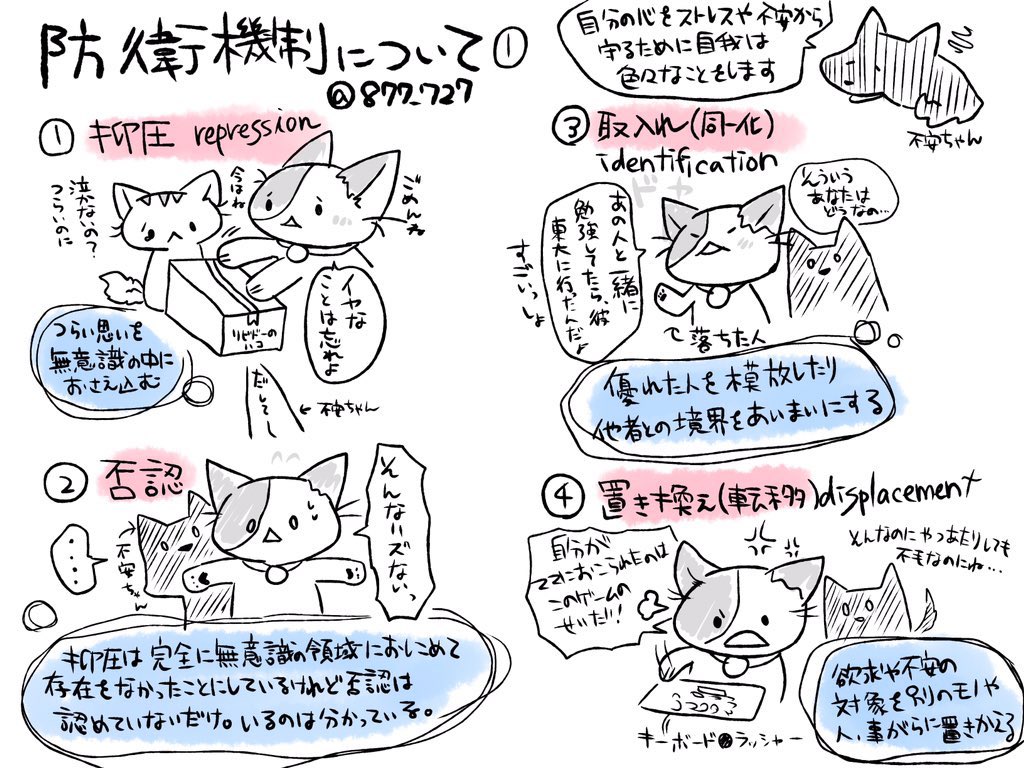 防衛機制について①
@877_727
自分の心をストレスや不安から
守るために自我は
色々なことをします
不安ちゃん
① 抑圧 repression
泣かないの?
つらいのに
今はね
ごめんね
イヤな
ことは忘れよ
リビドーの
ハコ
つらい思いを
無意識の中に
おさえ込む
だしてー
←不安ちゃん
② 否認
…
不安ちゃん
そんなハズないっ
抑圧は完全に無意識の領域におしこめて
存在をなかったことにしているけれど否認は
認めていないだけ。いるのは分かっている。
③ 取入れ(同一化)
identification
ドヤ
そういう
あなたは
どうなの…
あの人と一緒に
勉強してたら、彼
東大に行ったんだよ
すごいっしょ
落ちた人
優れた人を模放したり
他者との境界をあいまいにする
④ 置き換え(転移)displacement
自分が
ママにおこられたのは
このゲームの
せいだ!!
そんなのにやつあたりしても
不毛なのにね…
キーボード クラッシャー
欲求や不安の
対象を別のモノや
人、事がらに置きかえる